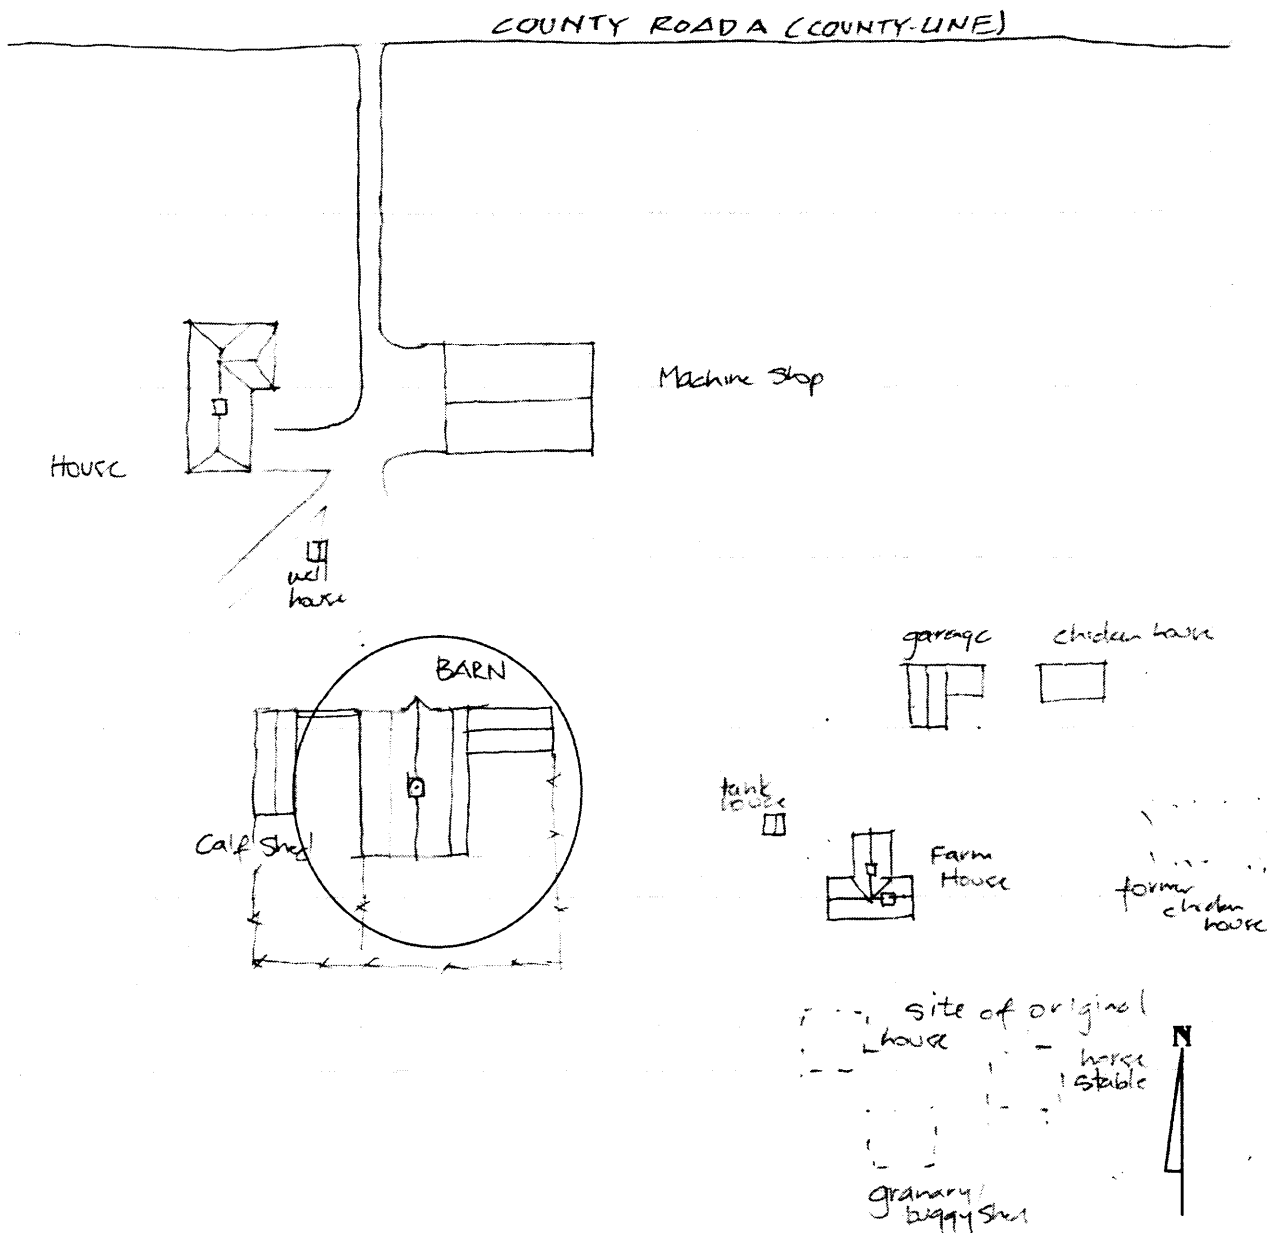 COUNTY ROAD A (COUNTY-LINE)
Machine Shop
House
well
house
BARN
garage
chicken house
tank
house
Calf Shed
Farm
House
former
chicken
house
site of original
house
horse
stable
N
granary/
buggy shed